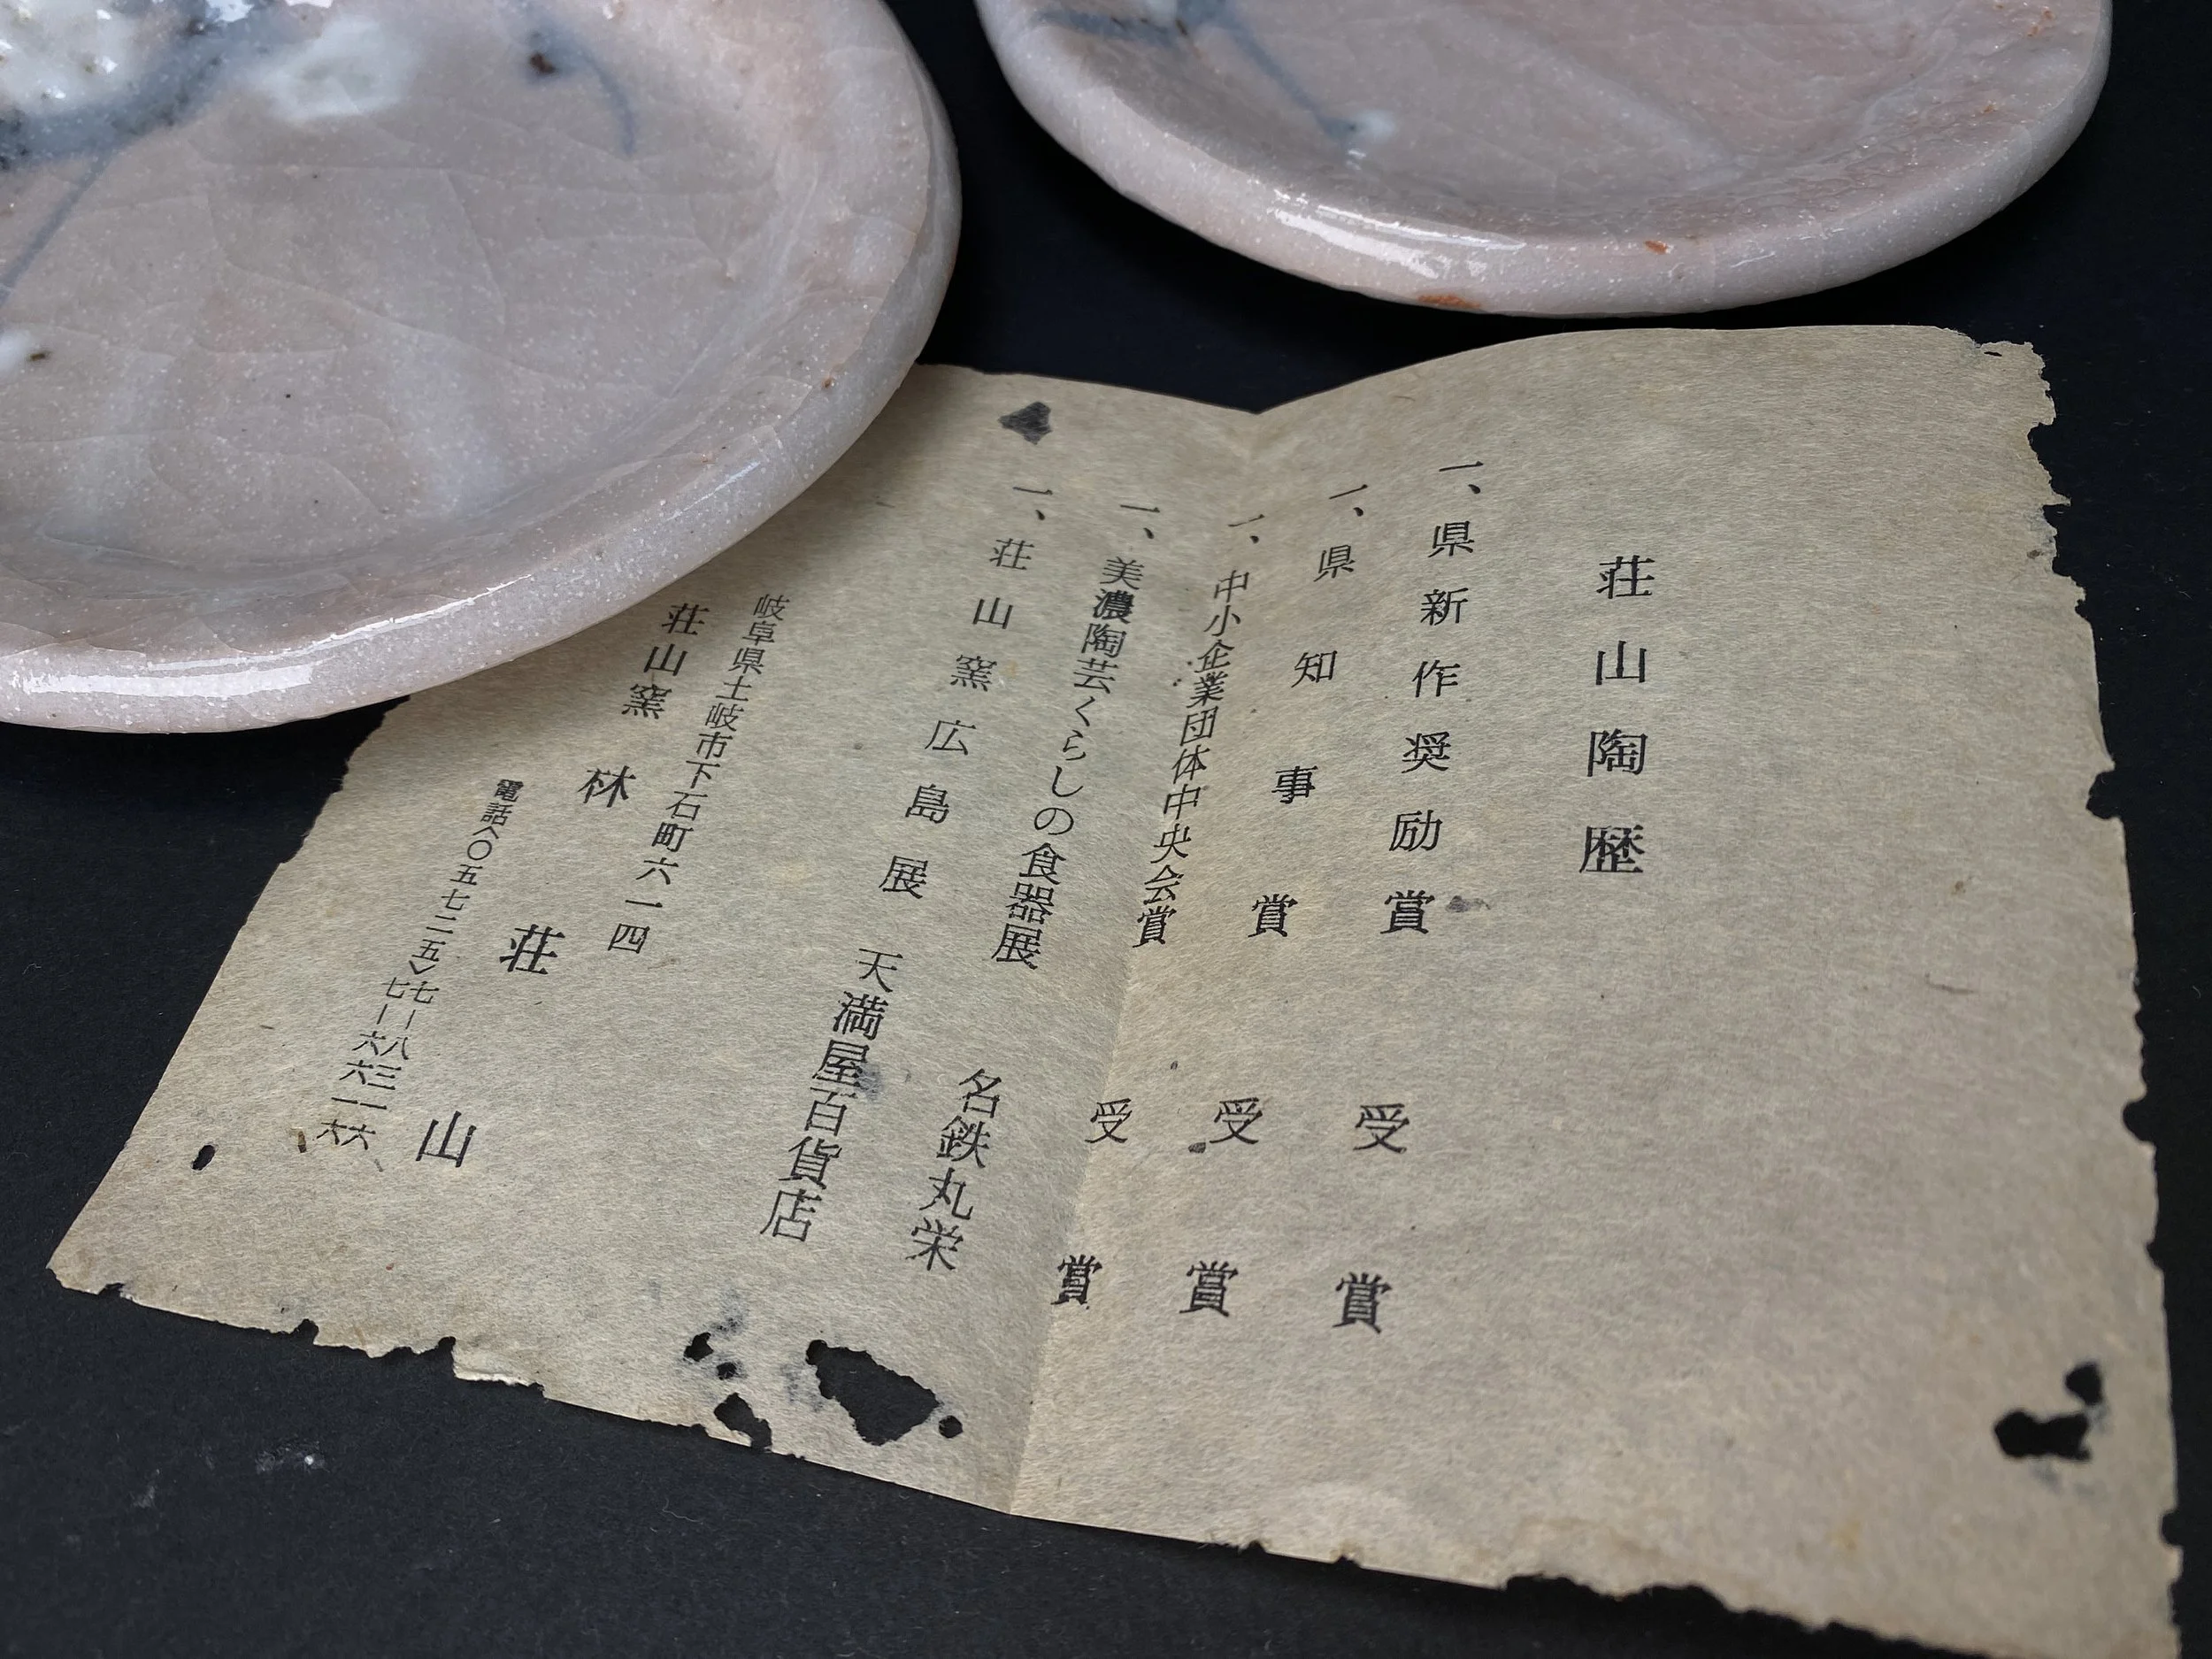 荘山陶歴
一、県新作奨励賞 受賞
一、県知事賞 受賞
一、中小企業団体中央会賞 受賞
一、美濃陶芸くらしの食器展 名鉄丸栄
一、荘山窯広島展 天満屋百貨店
岐阜県土岐市下石町六一四
荘山窯 林 荘山
電話〈〇五七二五〉七―八三一六
七―六六一六